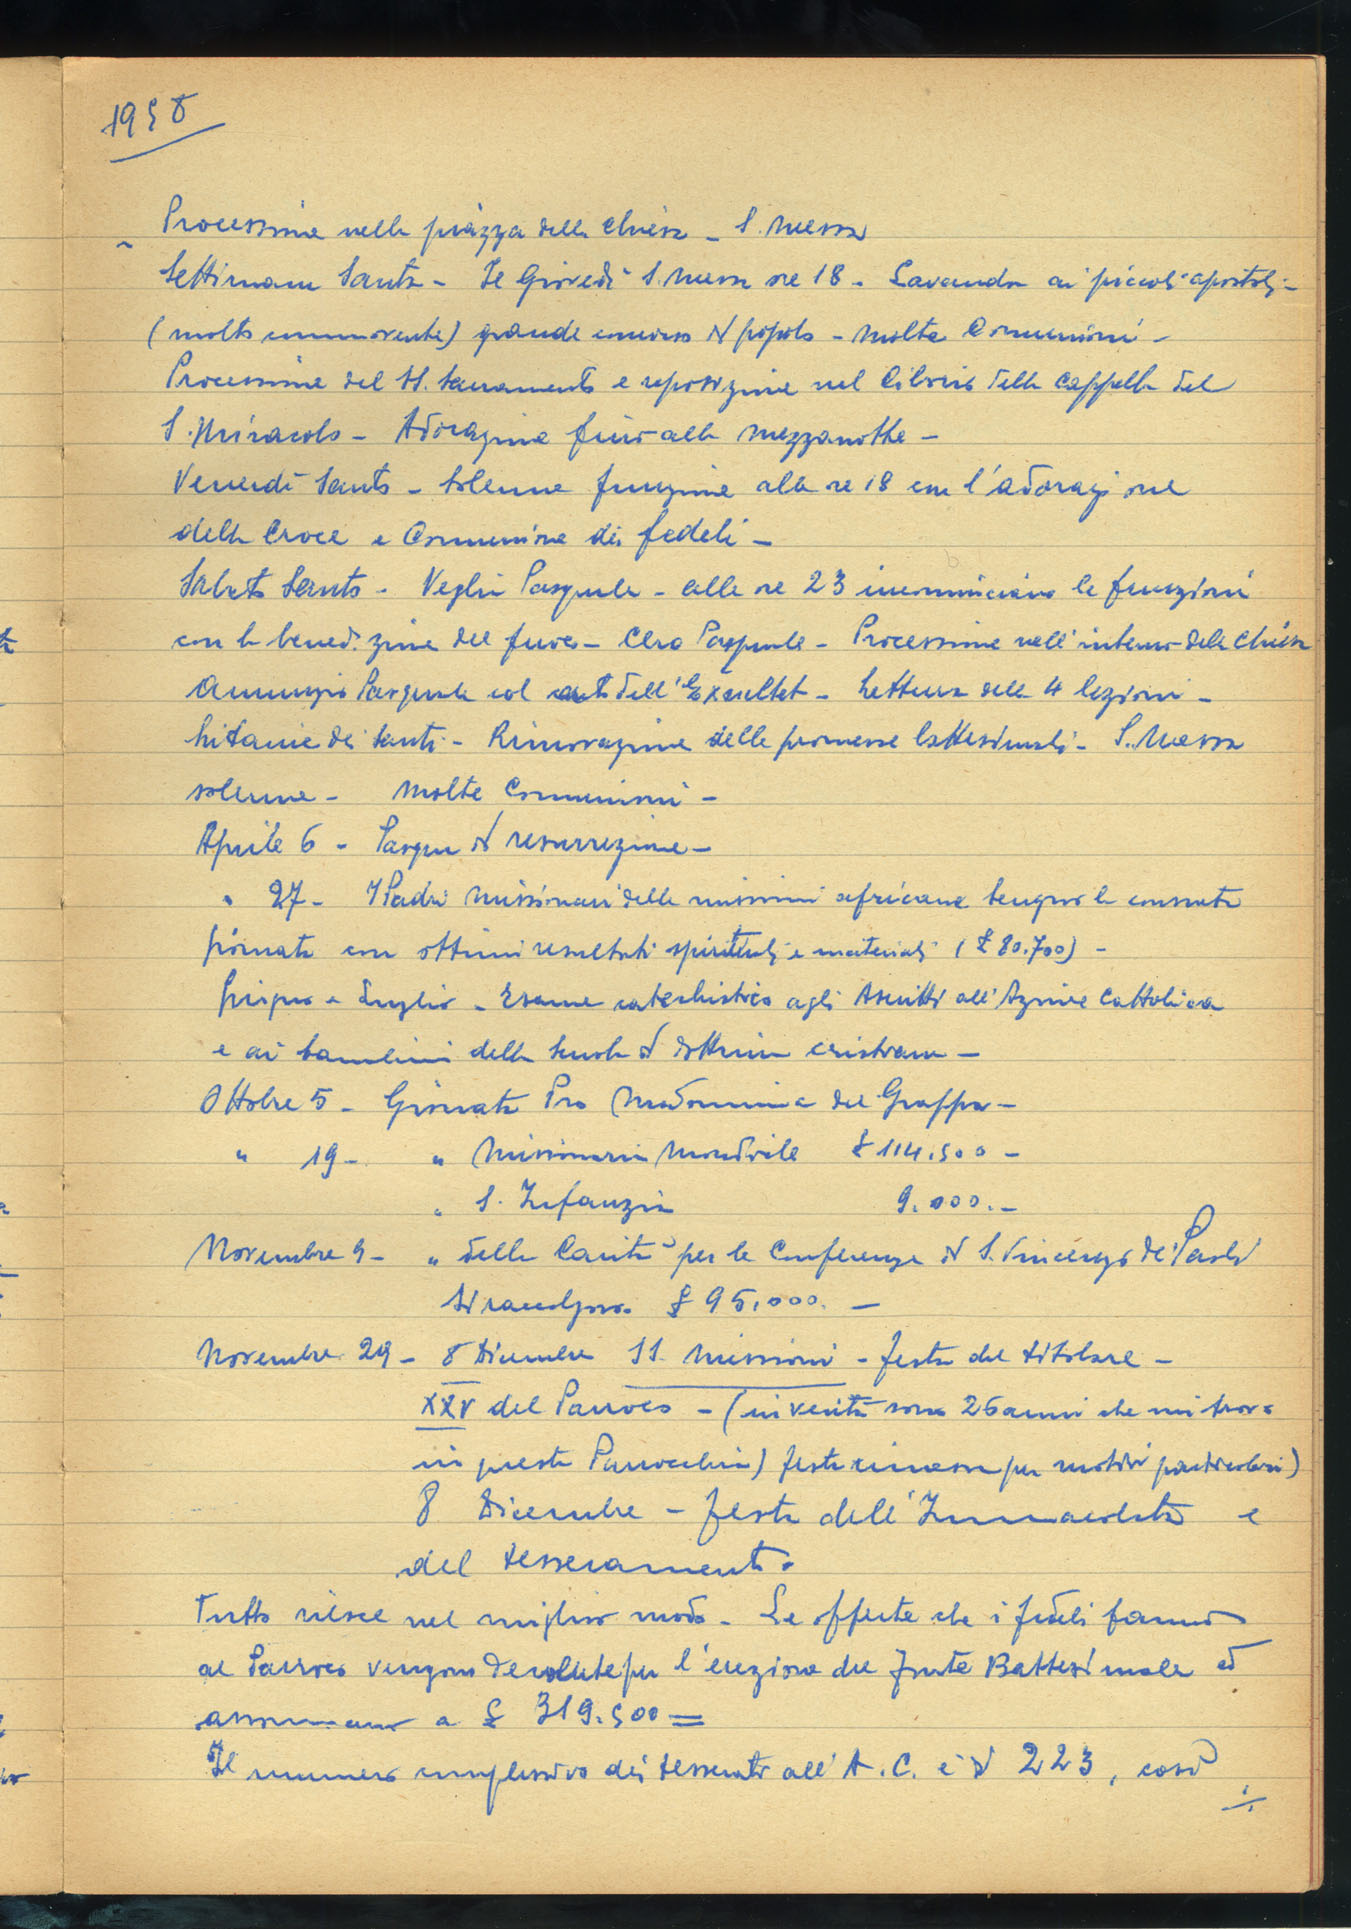 1958
Processione nella piazza della Chiesa - S. Messa
Settimana Santa - Il Giovedì S. Messa ore 18 - Lavanda ai piccoli apostoli -
(molto commovente) grande concorso di popolo - molte Comunioni -
Processione del SS. Sacramento e reposizione nel Ciborio della Cappella del
S. Miracolo - Adorazione fino alla mezzanotte -
Venerdì Santo - Solenne funzione alle ore 18 con l'adorazione
della Croce e Comunione dei fedeli -
Sabato Santo - Veglia Pasquale - alle ore 23 incominciano le funzioni
con la benedizione del fuoco - Cero Pasquale - Processione nell'interno della Chiesa
Annunzio Pasquale col canto dell'Exsultet - Lettura delle 4 lezioni -
Litanie dei Santi - Rinnovazione delle promesse battesimali - S. Messa
solenne - Molte Comunioni -
Aprile 6 - Pasqua di resurrezione -
" 27 - I Padri Missionari delle missioni africane tengono la consueta
giornata con ottimi resultati spirituali e materiali (£ 80.700) -
Giugno e Luglio - Esame catechistico agli Ascritti all'Azione Cattolica
e ai bambini della Scuola di dottrina cristiana -
Ottobre 5 - Giornata Pro Madonnina del Grappa -
" 19 - " Missionaria Mondiale £ 114.500 -
" S. Infanzia 9.000. -
Novembre 9 - " della Carità per le Conferenze di S. Vincenzo de' Paoli
si raccolgono £ 95.000. -
Novembre 29 - 8 Dicembre SS. Missioni - festa del titolare -
XXV del Parroco - (in verità sono 26 anni che mi trovo
in questa Parrocchia) festa rimessa per motivi particolari)
8 Dicembre - festa dell'Immacolata e
del tesseramento.
Tutto riesce nel miglior modo - Le offerte che i fedeli fanno
al Parroco vengono devolute per l'erezione del fonte Battesimale ed
assommano a £ 319.500 =
Il numero complessivo dei tesserati all'A.C. è di 223, così
./.